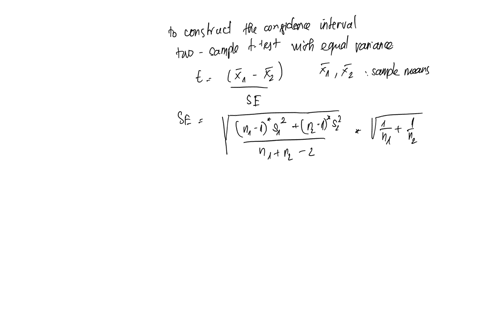 to construct the confidence interval
two-sample t test with equal variance
t = (x̄1 - x̄2) / SE    x̄1, x̄2 : sample means
SE = √(((n1-1)*s1² + (n2-1)*s2²) / (n1 + n2 - 2)) * √(1/n1 + 1/n2)